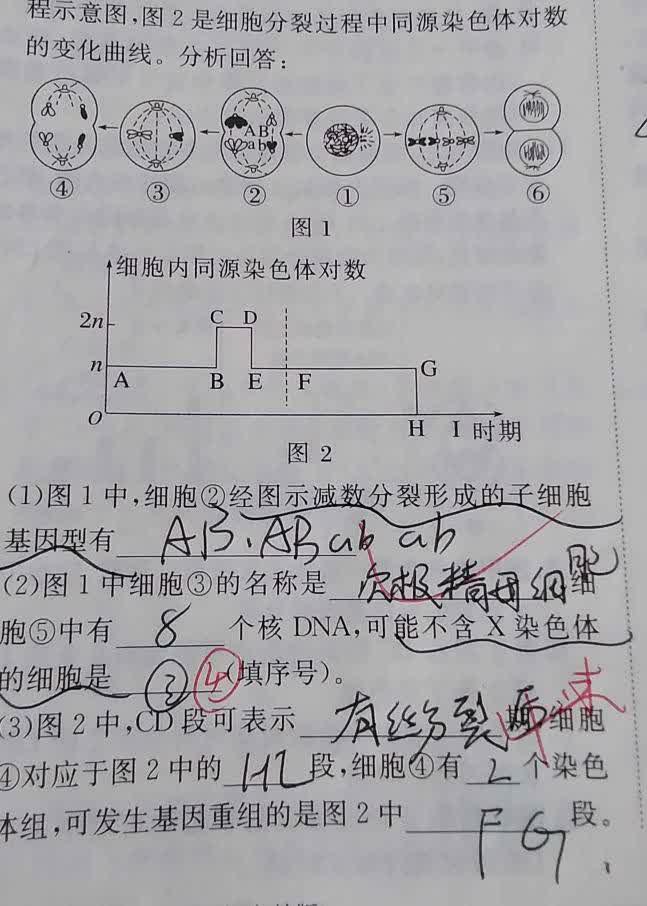 程示意图,图2是细胞分裂过程中同源染色体对数
的变化曲线。分析回答:
A B
a b
④ ③ ② ① ⑤ ⑥
图1
细胞内同源染色体对数
2n C D
n A B E F G
O H I 时期
图2
(1)图1中,细胞②经图示减数分裂形成的子细胞
基因型有 AB、AB ab ab
(2)图1中细胞③的名称是 次极精母细胞 细
胞⑤中有 8 个核DNA,可能不含X染色体
的细胞是 ③ ④ (填序号)。
(3)图2中,CD段可表示 有丝分裂后 末 细胞
④对应于图2中的 HI 段,细胞④有 2 个染色
体组,可发生基因重组的是图2中 FG 段。